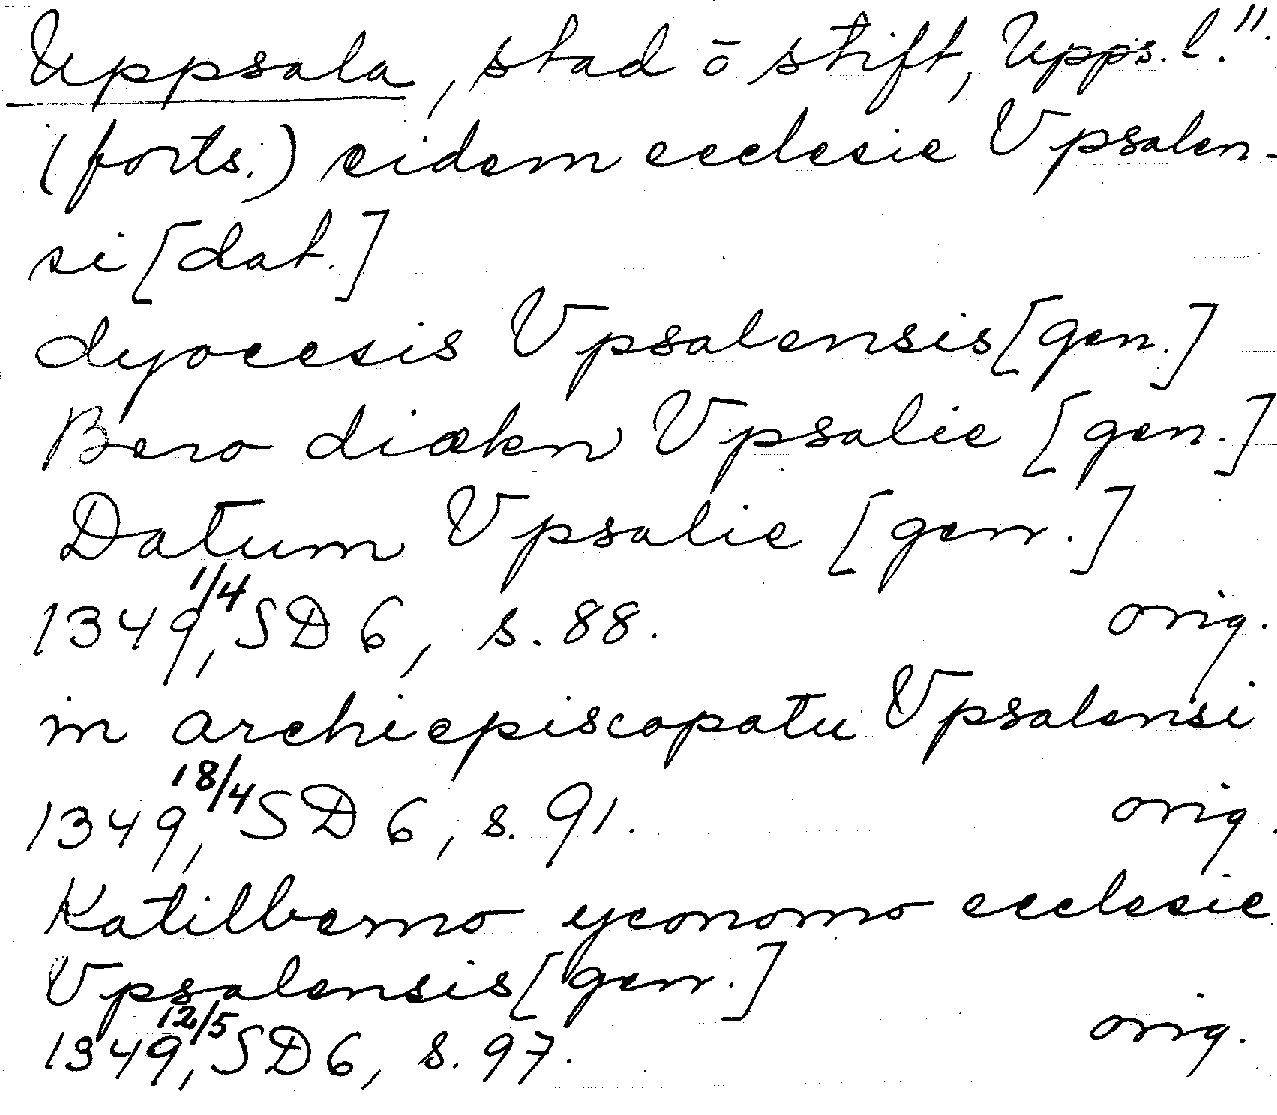 Uppsala, stad o stift, Upps. l. 11.
(forts.) eidem ecclesie Vpsalen-
si [dat.]
dyocesis Vpsalensis [gen.]
Bero diækn Vpsalie [gen.]
Datum Vpsalie [gen.]
1349 1/4, SD 6, s. 88. orig.
in archiepiscopatu Vpsalensi
1349 18/4, SD 6, s. 91. orig.
Katilberno yconomo ecclesie
Vpsalensis [gen.]
1349 12/5, SD 6, s. 97. orig.